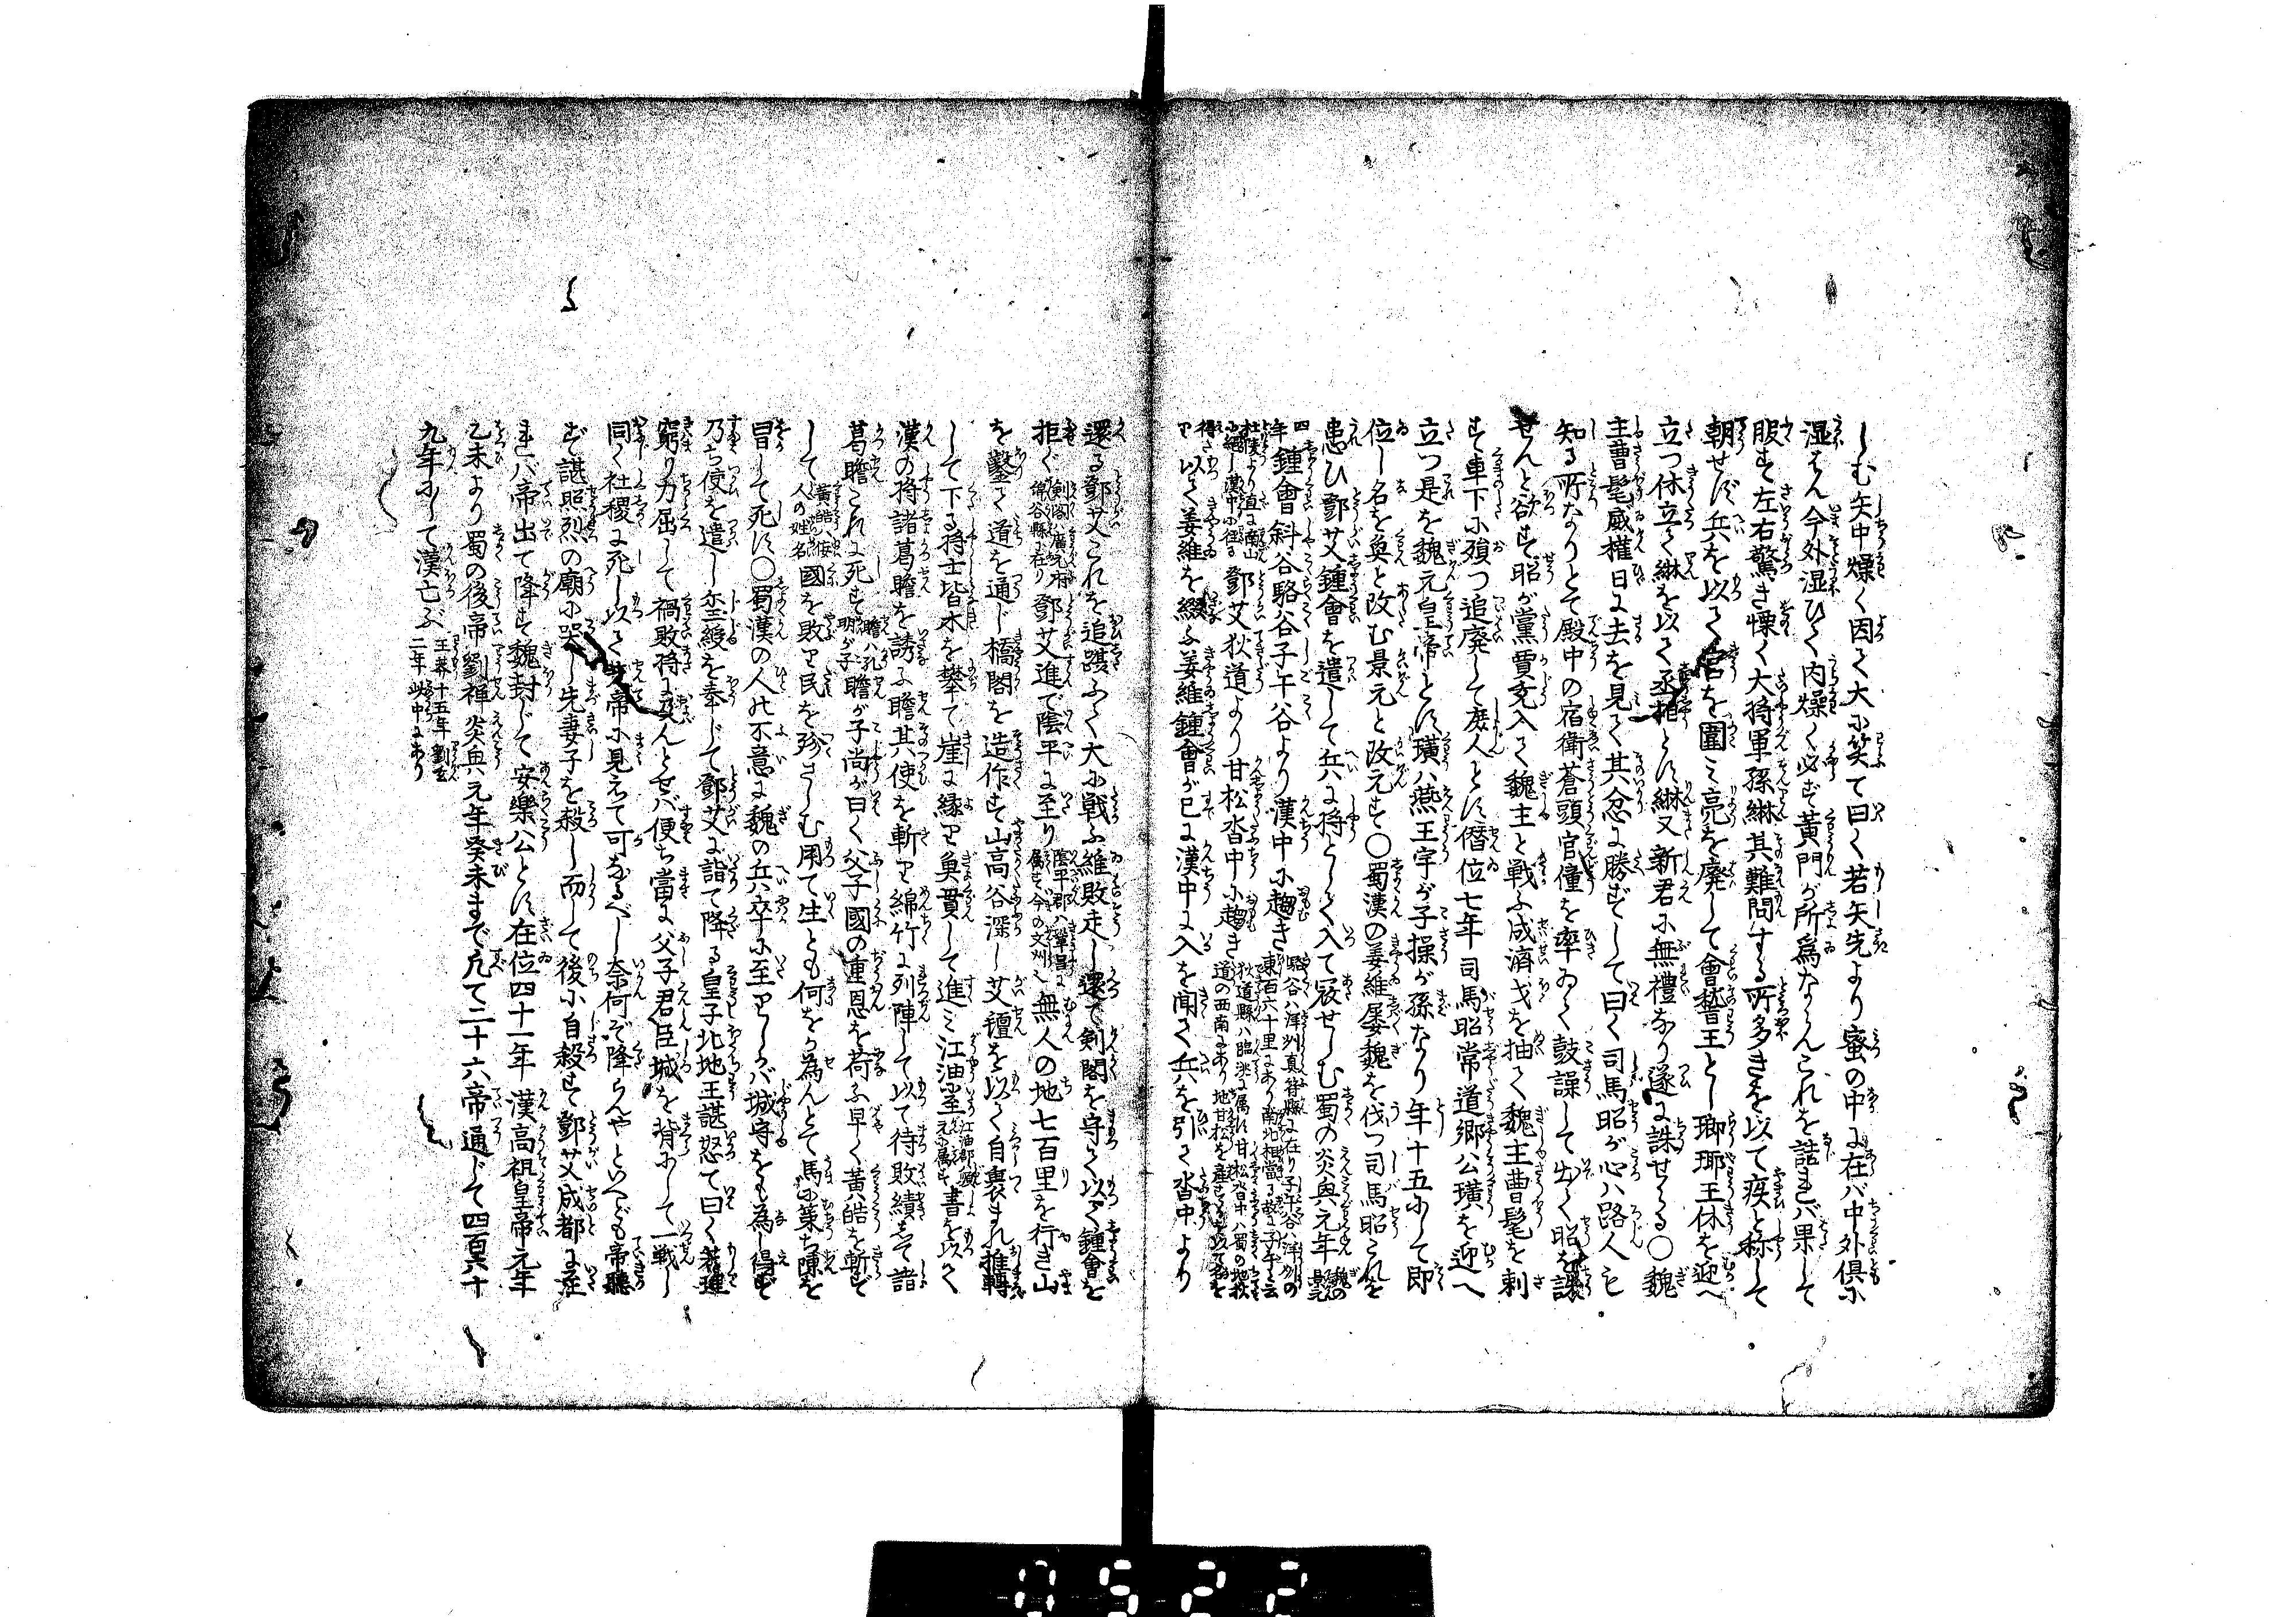 しむ矢中燥く因て大に笑て曰く若矢先より蜜の中に在バ中外倶に
湿はん今外湿ひて内燥く必ず黄門が所爲ならんこれを詰れバ果して
服す左右驚き慄く大将軍孫綝其難問する所多きを以て疾と称して
朝せず兵を以て宮を圍み亮を廃して會稽王とし瑯琊王休を迎へ
立つ休立て綝を以て丞相とす綝又新君に無禮なり遂に誅せらる〇魏
主曹髦威権日に去を見て其忿に勝ずして曰く司馬昭が心ハ路人も
知る所なりとて殿中の宿衛蒼頭官僮を率ゐて鼓譟して出て昭を誅
せんと欲す昭が黨賈充入て魏主と戦ふ成濟戈を抽て魏主曹髦を刺
す車下に殞つ追廃して庶人とす僭位七年司馬昭常道郷公璜を迎へ
立つ是を魏元皇帝とす璜ハ燕王宇が子操が孫なり年十五にして即
位し名を奐と改む景元と改元す〇蜀漢の姜維屡魏を伐つ司馬昭これを
患ひ鄧艾鍾會を遣して兵に将として入て寇せしむ蜀の炎興元年 魏の景元
四年 鍾會斜谷駱谷子午谷より漢中に趨き 駱谷ハ洋州真符縣に在り子午谷ハ洋州の東百六十里にあり南北相當る故に子午と云
杜陵より直に南山 漢中に徑る 鄧艾狄道より甘松沓中に趨き 狄道縣ハ臨洮に属す甘松沓中ハ蜀の地狄道の西南にあり地甘松を産するを以て名を
得 以て姜維を綴ふ姜維鍾會が已に漢中に入を聞て兵を引て沓中より
還る鄧艾これを追躡ふて大に戦ふ維敗走し還て剣閣を守て以て鍾會を
拒ぐ 剣閣ハ廣元府綿谷縣に在り 鄧艾進で陰平に至り 陰平郡ハ鞏昌に属す今の文州 無人の地七百里を行き山
を鑿て道を通じ橋閣を造作す山高谷深し艾氈を以て自裹まれ推轉
して下る将士皆木を攀て崖に縁り魚貫して進み江油に至 書を以て
漢の将諸葛瞻を誘ふ瞻其使を斬り綿竹に列陣して以て待敗績して諸
葛瞻これに死す 瞻ハ孔明が子 瞻が子尚が曰く父子國の重恩を荷ふ早く黄皓を斬ず
して 黄皓ハ佞人の姓名 國を敗り民を殄さしむ用て生とも何をか為んとて馬に策ち陳を
冒して死す〇蜀漢の人ハ不意に魏の兵卒に至りしかバ城守をも為し得ず
乃ち使を遣し璽綬を奉じて鄧艾に詣て降る皇子北地王諶怒て曰く若理
窮り力屈して禍敗将に及んとせバ便ち當に父子君臣城を背にして一戦し
同く社稷に死し以て先帝に見えて可なるべし奈何ぞ降らんやといへども帝聴
ず諶昭烈の廟に哭し先妻子を殺し而して後に自殺す鄧艾成都に至
れバ帝出て降す魏封じて安樂公とす在位四十一年漢高祖皇帝元年
乙未より蜀の後帝劉禅炎興元年癸未まで凡て二十六帝通じて四百六十
九年にして漢亡ぶ 王莽十五年劉玄二年此中にあり
0522